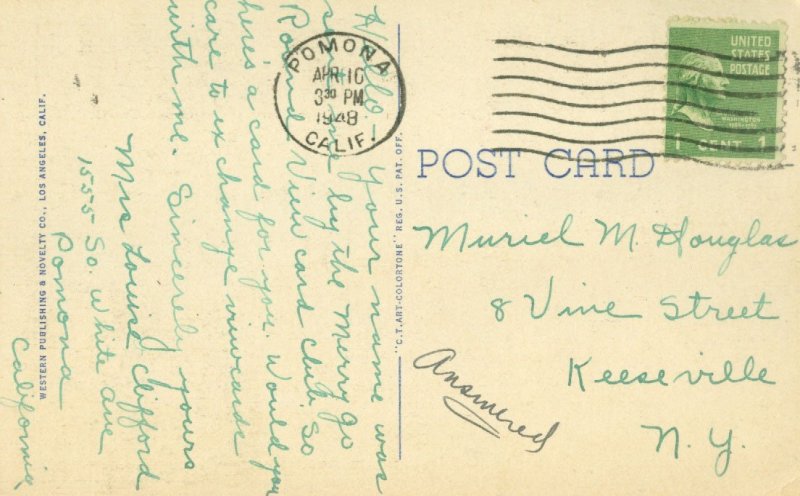 Hello! Your name was
sent me by the Merry go
Round View card club. So
here's a card for you. Would you
care to exchange viewcards
with me. Sincerely yours
Mrs Louise Clifford
1555 So. White Ave
Pomona
California
WESTERN PUBLISHING & NOVELTY CO., LOS ANGELES, CALIF.
"C.T. ART-COLORTONE" REG. U.S. PAT. OFF.
POMONA
APR 10
3 30 PM
1948
CALIF.
UNITED
STATES
POSTAGE
WASHINGTON
1 CENT 1
POST CARD
Muriel M. Douglas
8 Vine Street
Keeseville
N.Y.
Answered